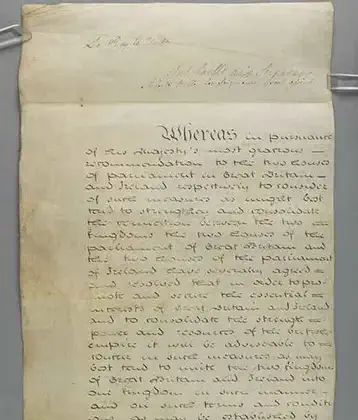 Whereas in pursuance
of his Majesty's most gracious
recommendation to the two houses
of parliament in Great Britain
and Ireland respectively to consider
of such measures as might best
tend to strengthen and consolidate
the connection between the two
kingdoms the two houses of the
parliament of Great Britain and
the two houses of the parliament
of Ireland have severally agreed
and resolved that in order to pro
mote and secure the essential
interests of Great Britain and Ireland
and to consolidate the strength
power and resources of the british
empire it will be advisable to
concur in such measures as may
best tend to unite the two kingdoms
of Great Britain and Ireland into
one kingdom in such manner
and on such terms and conditi
as may be established by